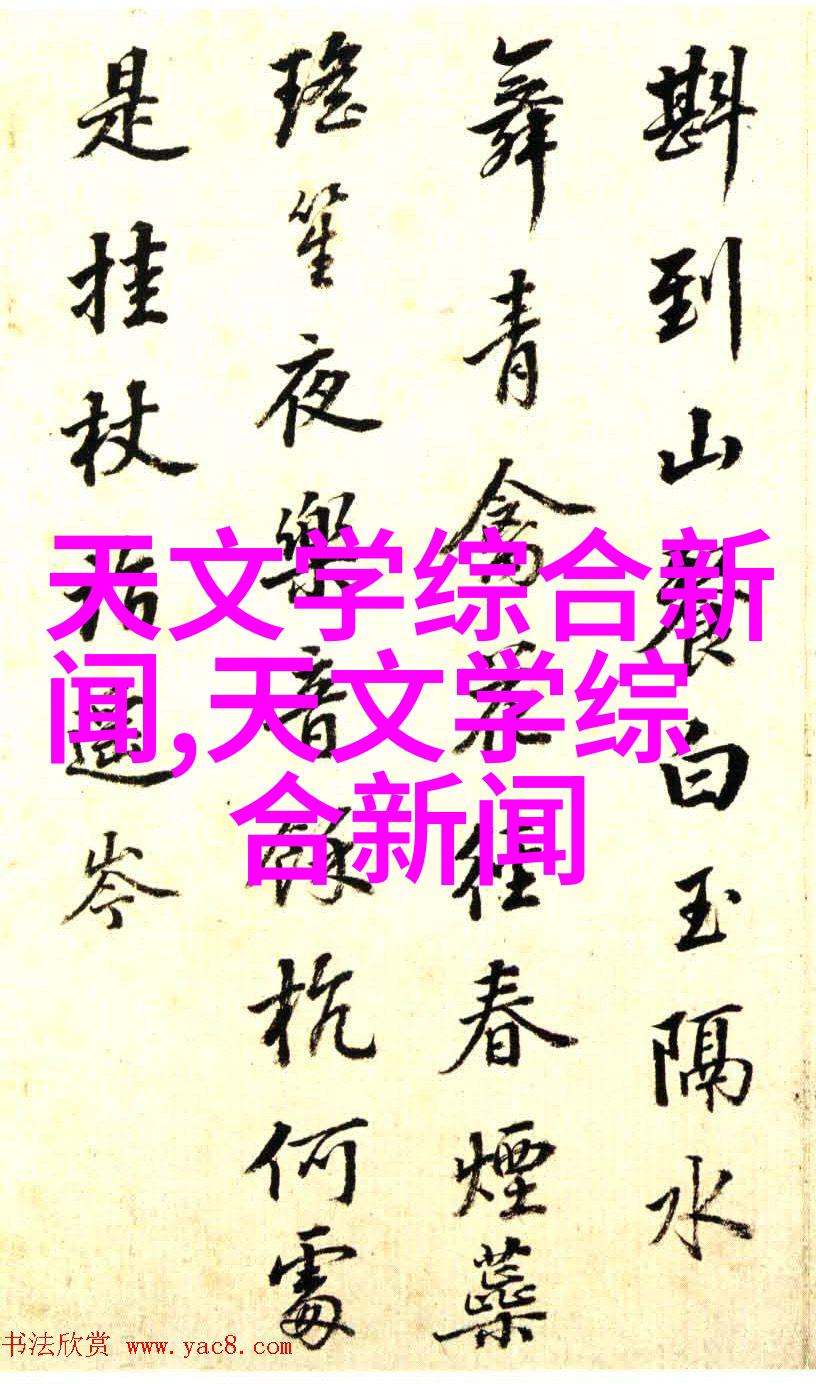 斟到山𩜙白玉隔水
舞青禽花径春煙蘂
瑤笙夜樂音餘杭何處
是挂杖指遥岑
天文学综合新
闻,天文学综
合新闻
书法欣赏 www.yac8.com